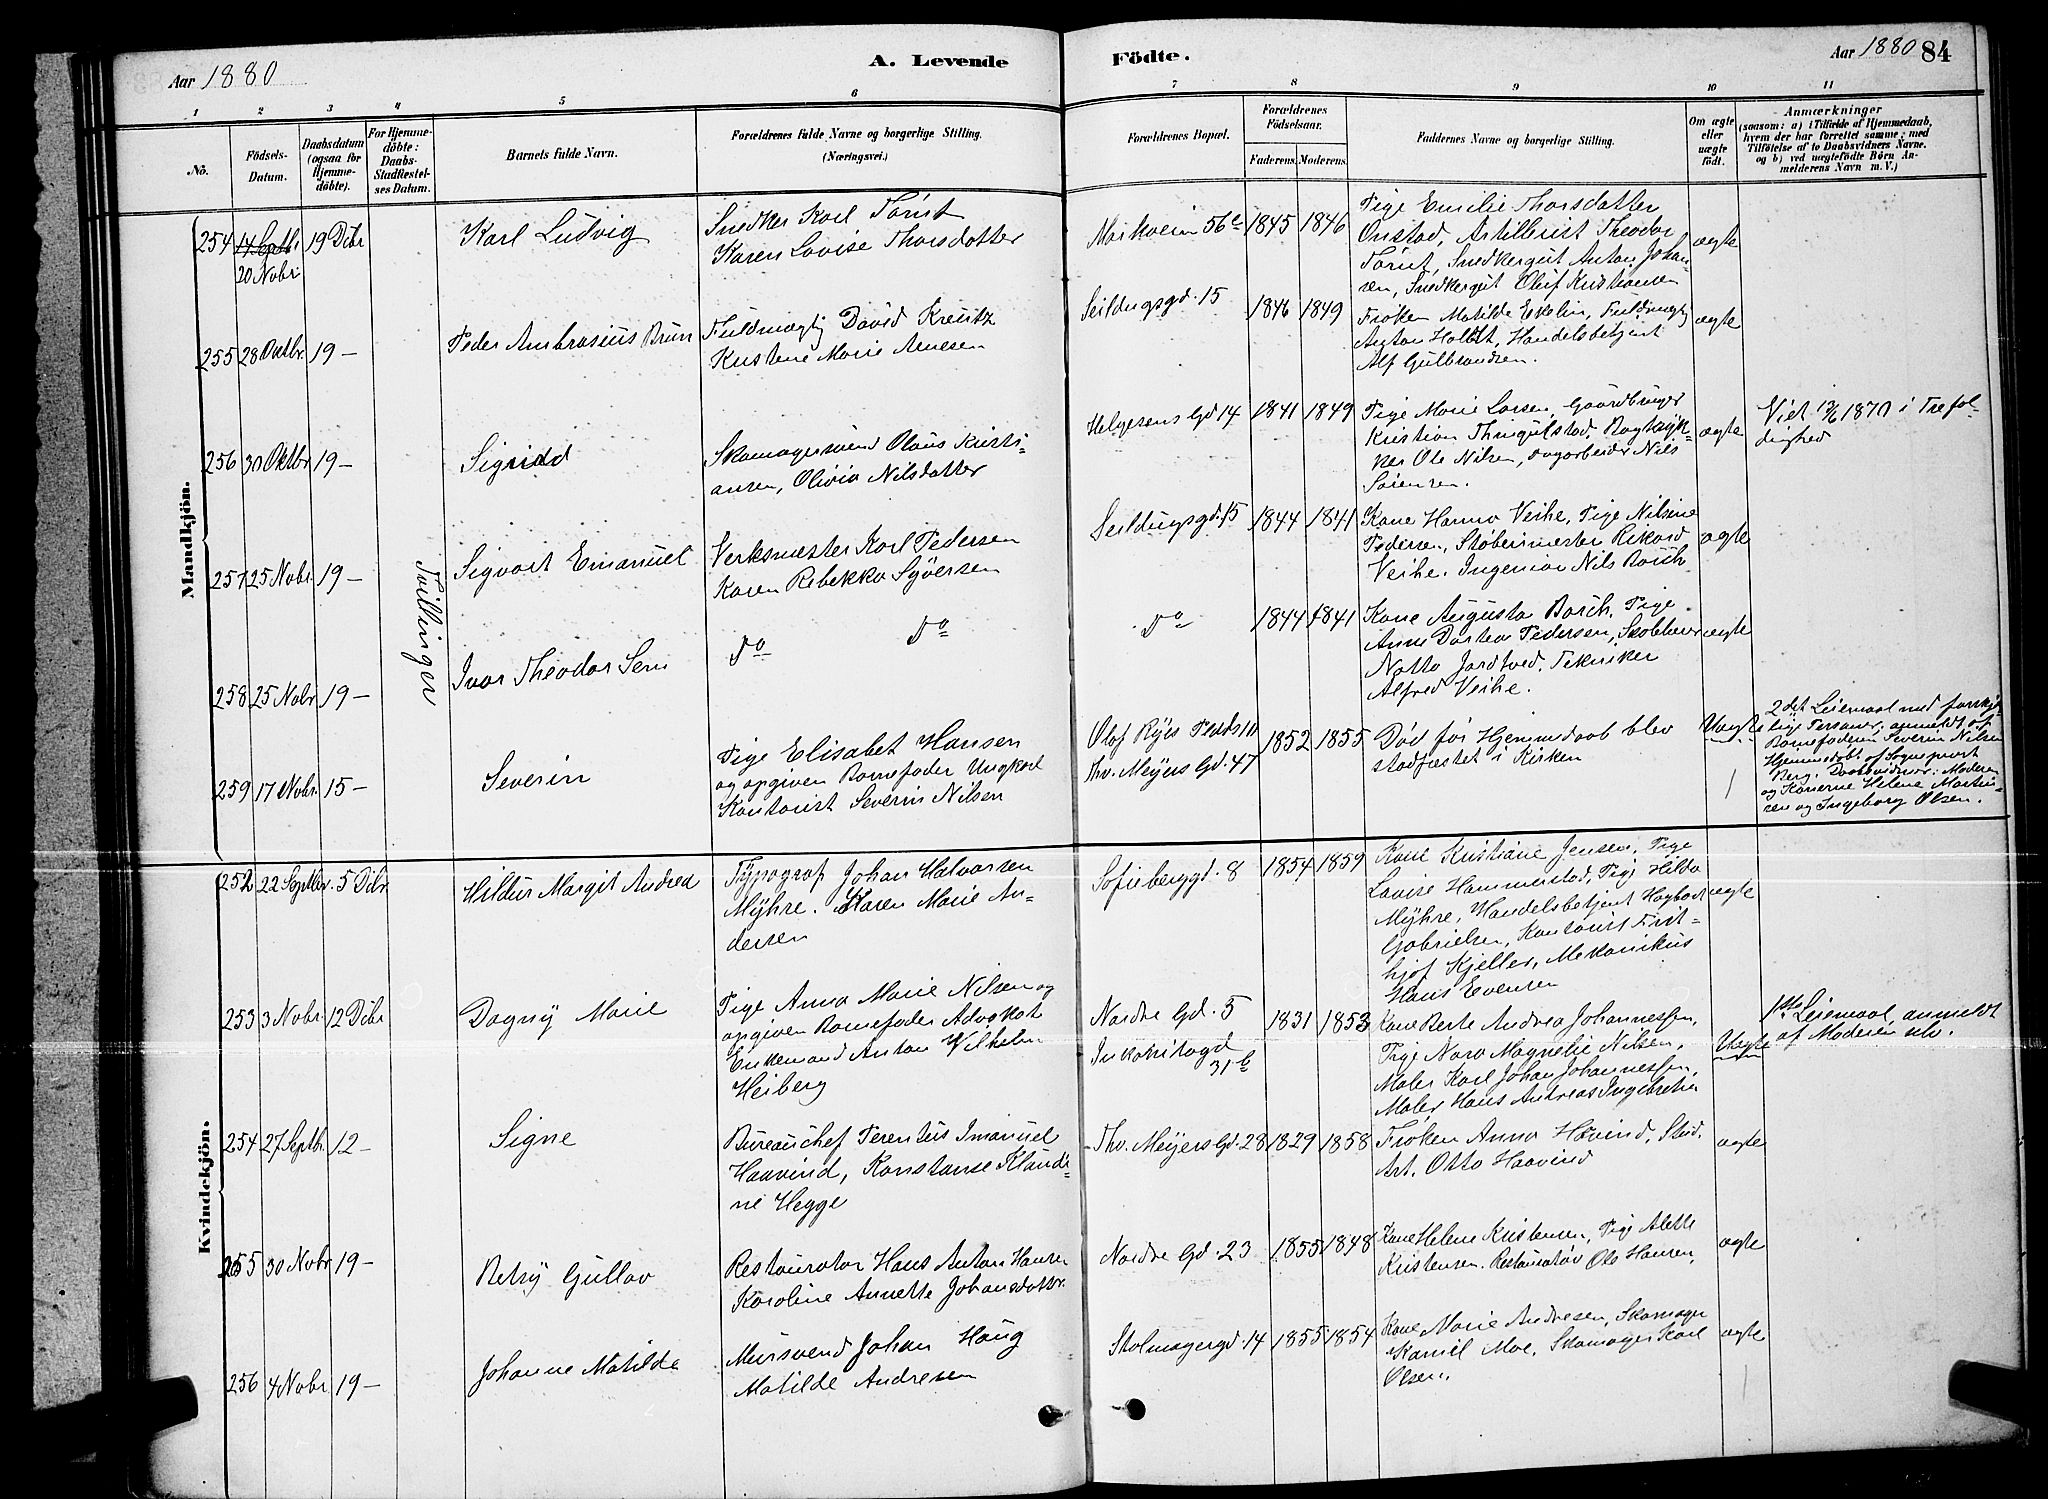 Aar 1880
A. Levende
Födte.
Aar 1880 84
1 2 3 4 5 6 7 8 9 10 11
No.
Födsels-
Datum.
Daabsdatum
(ogsaa for
Hjemme-
döbte).
For Hjemme-
döbte:
Daabs-
Stadfæstel-
ses Datum.
Barnets fulde Navn.
Forældrenes fulde Navne og borgerlige Stilling.
(Næringsvei.)
Forældrenes Bopæl.
Forældrenes
Födselsaar.
Faderens. Moderens.
Faddernes Navne og borgerlige Stilling.
Om ægte
eller
uægte
födt.
Anmærkninger
(saasom: a) i Tilfælde af Hjemmedaab,
hvem der har forrettet samme; med
Tilföielse af to Daabsvidners Navne.
og b) ved uægtefödte Börn An-
melderens Navn m. V.)
Mandkjön.
254 14 Septbr 19 Dcbr
20 Nobr.
Karl Ludvig
Snedker Karl Törnt
Karen Lovise Thorsdatter
Markveien 56c 1845 1846
Pige Emilie Thorsdatter
Onstad, Artillerist Theodor
Törnt, Snedkergut Anton Johan-
sen, Snedkergut Oluf Kristiansen
ægte
255 28 Oktbr. 19 —
Peder Ambrosius Brun
Fuldmægtig David Kreutz
Kristene Marie Arnesen
Seildugsgd. 15 1846 1849
Frøken Matilde Evelin, Fuldmægtig
Anton Holst, Handelsbetjent
Alf Gulbrandsen.
ægte
256 30 Oktbr 19 —
Sigvald
Skomagersvend Olaus Kristi-
ansen, Olivia Nilsdatter
Helgesens Gd 14 1841 1849
Pige Marie Larsen, Gaardbruger
Kristian Thingulstad, Bogtryk-
ker Ole Nilsen, Dagarbeider Nils
Sörensen.
ægte
Viet 12/6 1870 i Trefol-
dighed
257 25 Nobr. 19 —
Tvillinger
Sigvart Emanuel
Verksmester Karl Pedersen
Karen Rebekka Syversen
Seildugsgd. 15 1844 1841
Kone Hanna Veihe, Pige Nilsine
Pedersen, Støberimester Rikard
Veihe. Ingeniør Nils Borch
ægte
258 25 Nobr 19 —
Ivar Theodor Sem
Do Do
Do 1844 1841
Kone Augusta Borch, Pige
Anne Dortea Pedersen, Skobløver
Notto Jordtved. Tekniker
Alfred Veihe.
ægte
259 17 Nobr. 15 —
Severin
Pige Elisabet Hansen
og opgiven Barnefader Ungkarl
Kontorist Severin Nilsen
Olaf Ryes Plads 10
Thv. Meyers Gd. 47
1852 1855
Död før Hjemmedaab blev
stadfæstet i Kirken
Uægte
2det Leiermaal med forskjel-
lige Personer, anmeldt af
Barnefaderen Severin Nilsen
Hjemmedöbt af Sogneprest
Berg. Daabsvidner: Moderen
og Konerne Helene Martin-
sen og Ingeborg Olsen.
Kvindekjön.
252 22 Septbr. 5 Dcbr.
Hildur Margit Andrea
Typograf Johan Halvorsen
Myhre. Karen Marie An-
dersen
Sofiebergd. 8 1854 1859
Kone Kristiane Jensen, Pige
Lovise Hammerstad, Pige Hilda
Myhre, Handelsbetjent Hagbart
Gabrielsen, Kontorist Frit-
hjof Kjeller, Mekanikus
Hans Evensen
ægte
253 3 Nobr. 12 Dcbr
Dagny Marie
Pige Anna Marie Nilsen og
opgiven Barnefader Advokat
Enkemand Anton Vilhelm
Heiberg
Nordre Gd. 5
Inkognitogd
31 b
1831 1853
Kone Berte Andrea Johannessen,
Pige Nora Magnelie Nilsen,
Maler Karl Johan Johannessen,
Maler Hans Andreas Ingebretsen
Uægte
1ste Leiermaal, anmeldt
af Moderen selv.
254 27 Septbr. 12 —
Signe
Bureauchef Terentius Imanuel
Haavind, Konstanse Klaudi-
ne Hegge
Thv. Meyers Gd. 28 1829 1858
Frøken Anna Hævind, Stud.
Art. Otto Haavind
ægte
255 30 Nobr. 19 —
Betsy Gullav
Restauratør Hans Anton Hansen
Karoline Annette Johansdatter
Nordre Gd. 23 1855 1848
Kone Helene Kristensen, Pige Alette
Kristensen. Restauratør Ole Hansen,
ægte
256 4 Nobr. 19 —
Johanne Matilde
Mursvend Johan Haug
Matilde Andresen
Stolmagergd. 14 1855 1854
Kone Marie Andresen, Skomager
Kamil Moe, Skomager Karl
Olsen.
ægte